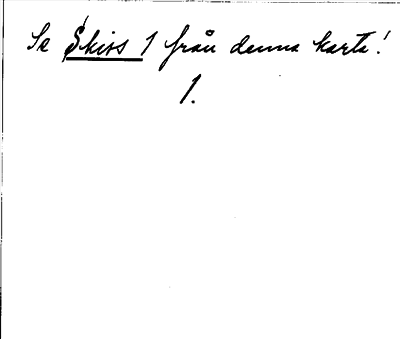 Se Skiss 1 från denna karta!
1.